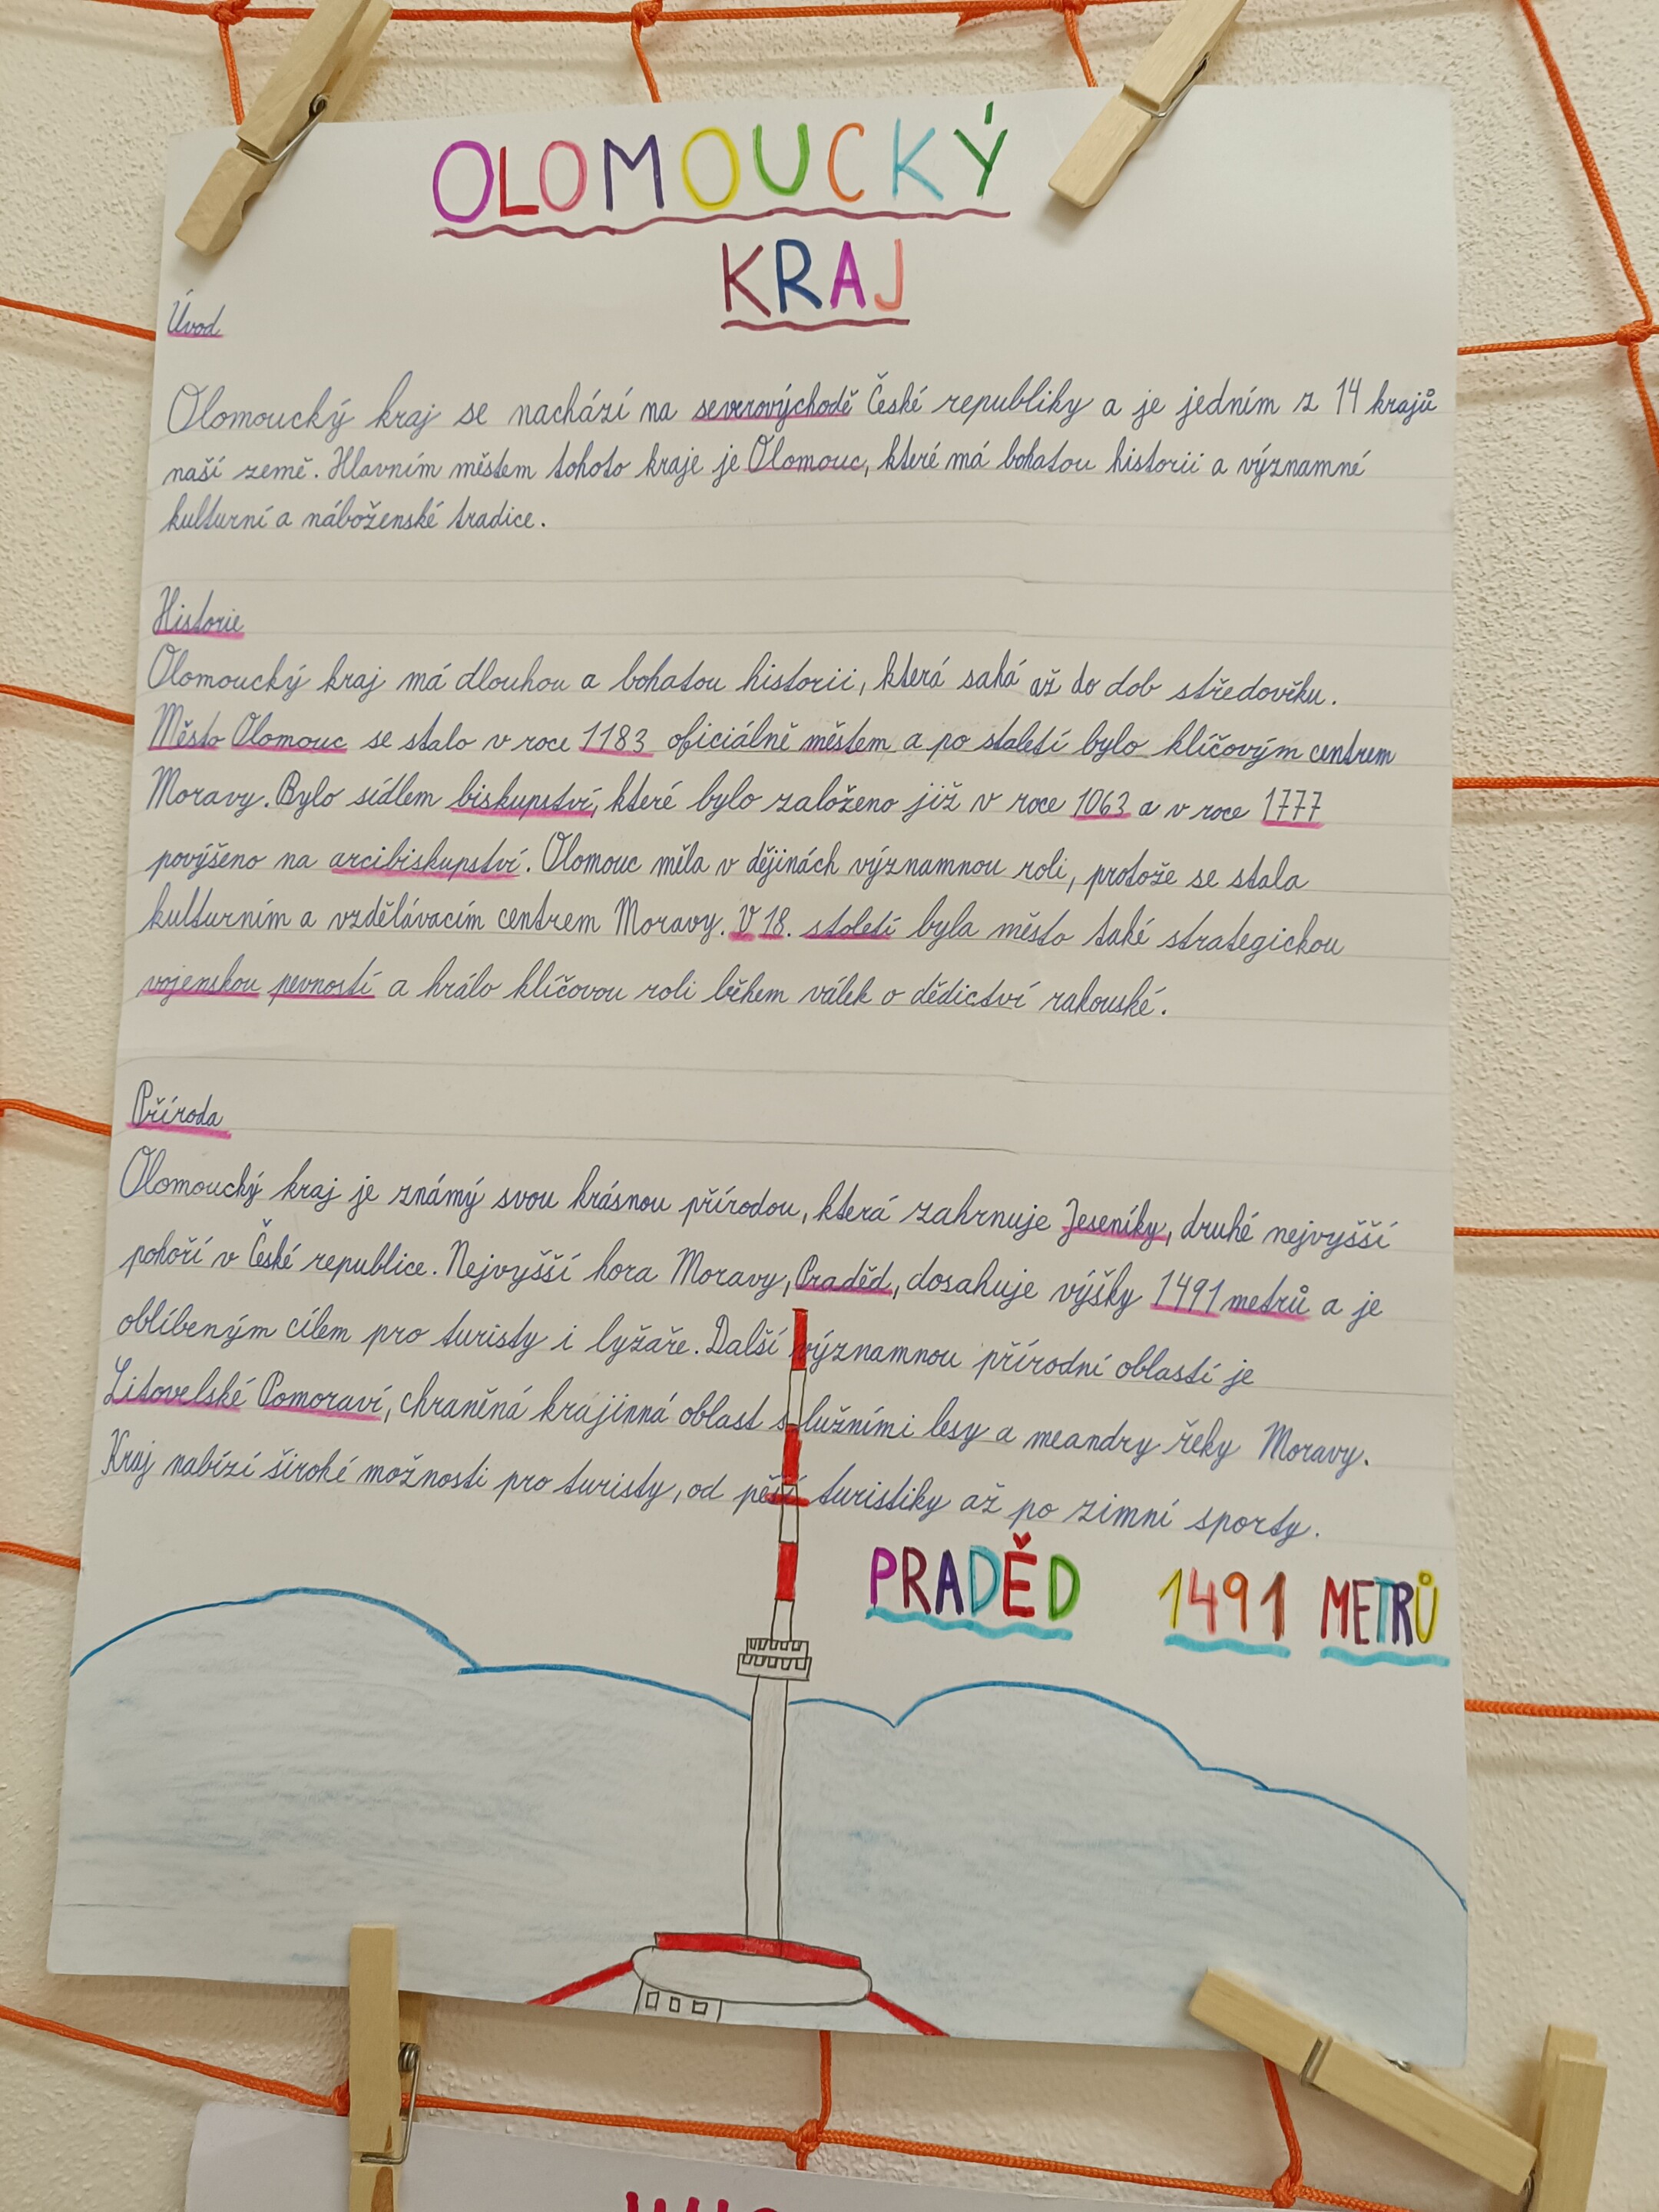 OLOMOUCKÝ
KRAJ
Úvod
Olomoucký kraj se nachází na severovýchodě České republiky a je jedním z 14 krajů
naší země. Hlavním městem tohoto kraje je Olomouc, které má bohatou historii a významné
kulturní a náboženské tradice.
Historie
Olomoucký kraj má dlouhou a bohatou historii, která sahá až do dob středověku.
Město Olomouc se stalo v roce 1183 oficiálně městem a po staletí bylo klíčovým centrem
Moravy. Bylo sídlem biskupství, které bylo založeno již v roce 1063 a v roce 1777
povýšeno na arcibiskupství. Olomouc měla v dějinách významnou roli, protože se stala
kulturním a vzdělávacím centrem Moravy. V 18. století byla město také strategickou
vojenskou pevností a hrálo klíčovou roli během válek o dědictví rakouské.
Příroda
Olomoucký kraj je známý svou krásnou přírodou, která zahrnuje Jeseníky, druhé nejvyšší
pohoří v České republice. Nejvyšší hora Moravy, Praděd, dosahuje výšky 1491 metrů a je
oblíbeným cílem pro turisty i lyžaře. Další významnou přírodní oblastí je
Litovelské Pomoraví, chraněná krajinná oblast s lužními lesy a meandry řeky Moravy.
Kraj nabízí široké možnosti pro turisty, od pěší turistiky až po zimní sporty.
PRADĚD 1491 METRŮ